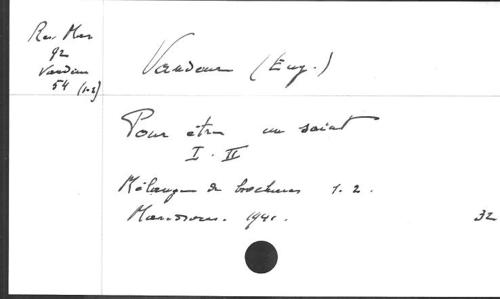 Res. Mar
92
Vandeur
54 (1-2)
Vandeur (Eug.)
Pour être un saint
I. II
Mélanges de brochures 1. 2.
Maredsous. 1941.
32